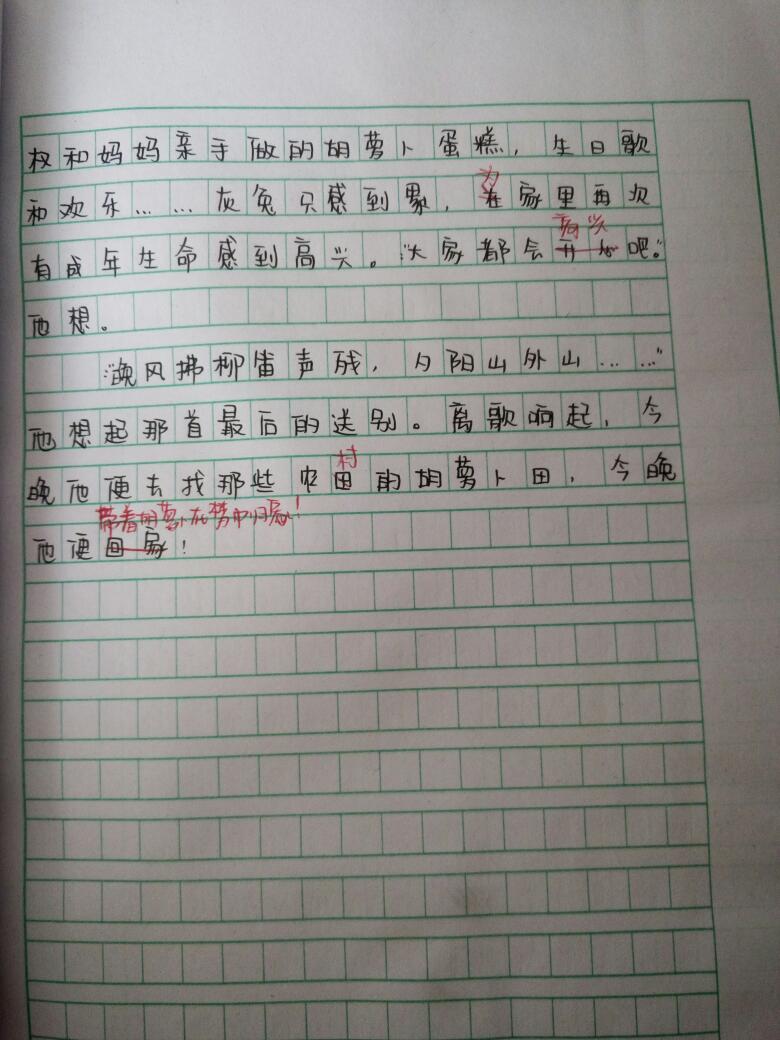 权和妈妈亲手做的胡萝卜蛋糕，生日歌
为
和欢乐……灰兔只感到累，在家里再次
高兴
有成年生命感到高兴。"大家都会开心吧。"
他想。
"晚风拂柳笛声残，夕阳山外山……"
他想起那首最后的送别。离歌响起，今
村
晚他便去找那些农田的胡萝卜田，今晚
带着胡萝卜在梦中归家！
他便回家！